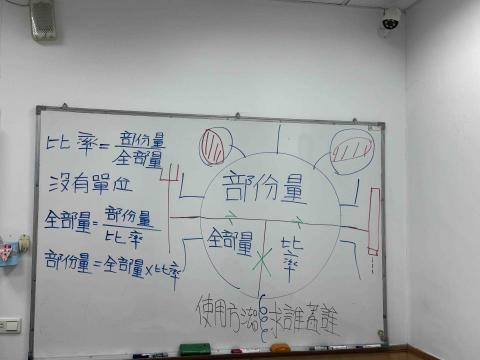 比率=部份量/全部量
沒有單位
全部量=部份量/比率
部份量=全部量×比率
部份量
全部量
×
比率
使用方法:求誰蓋誰